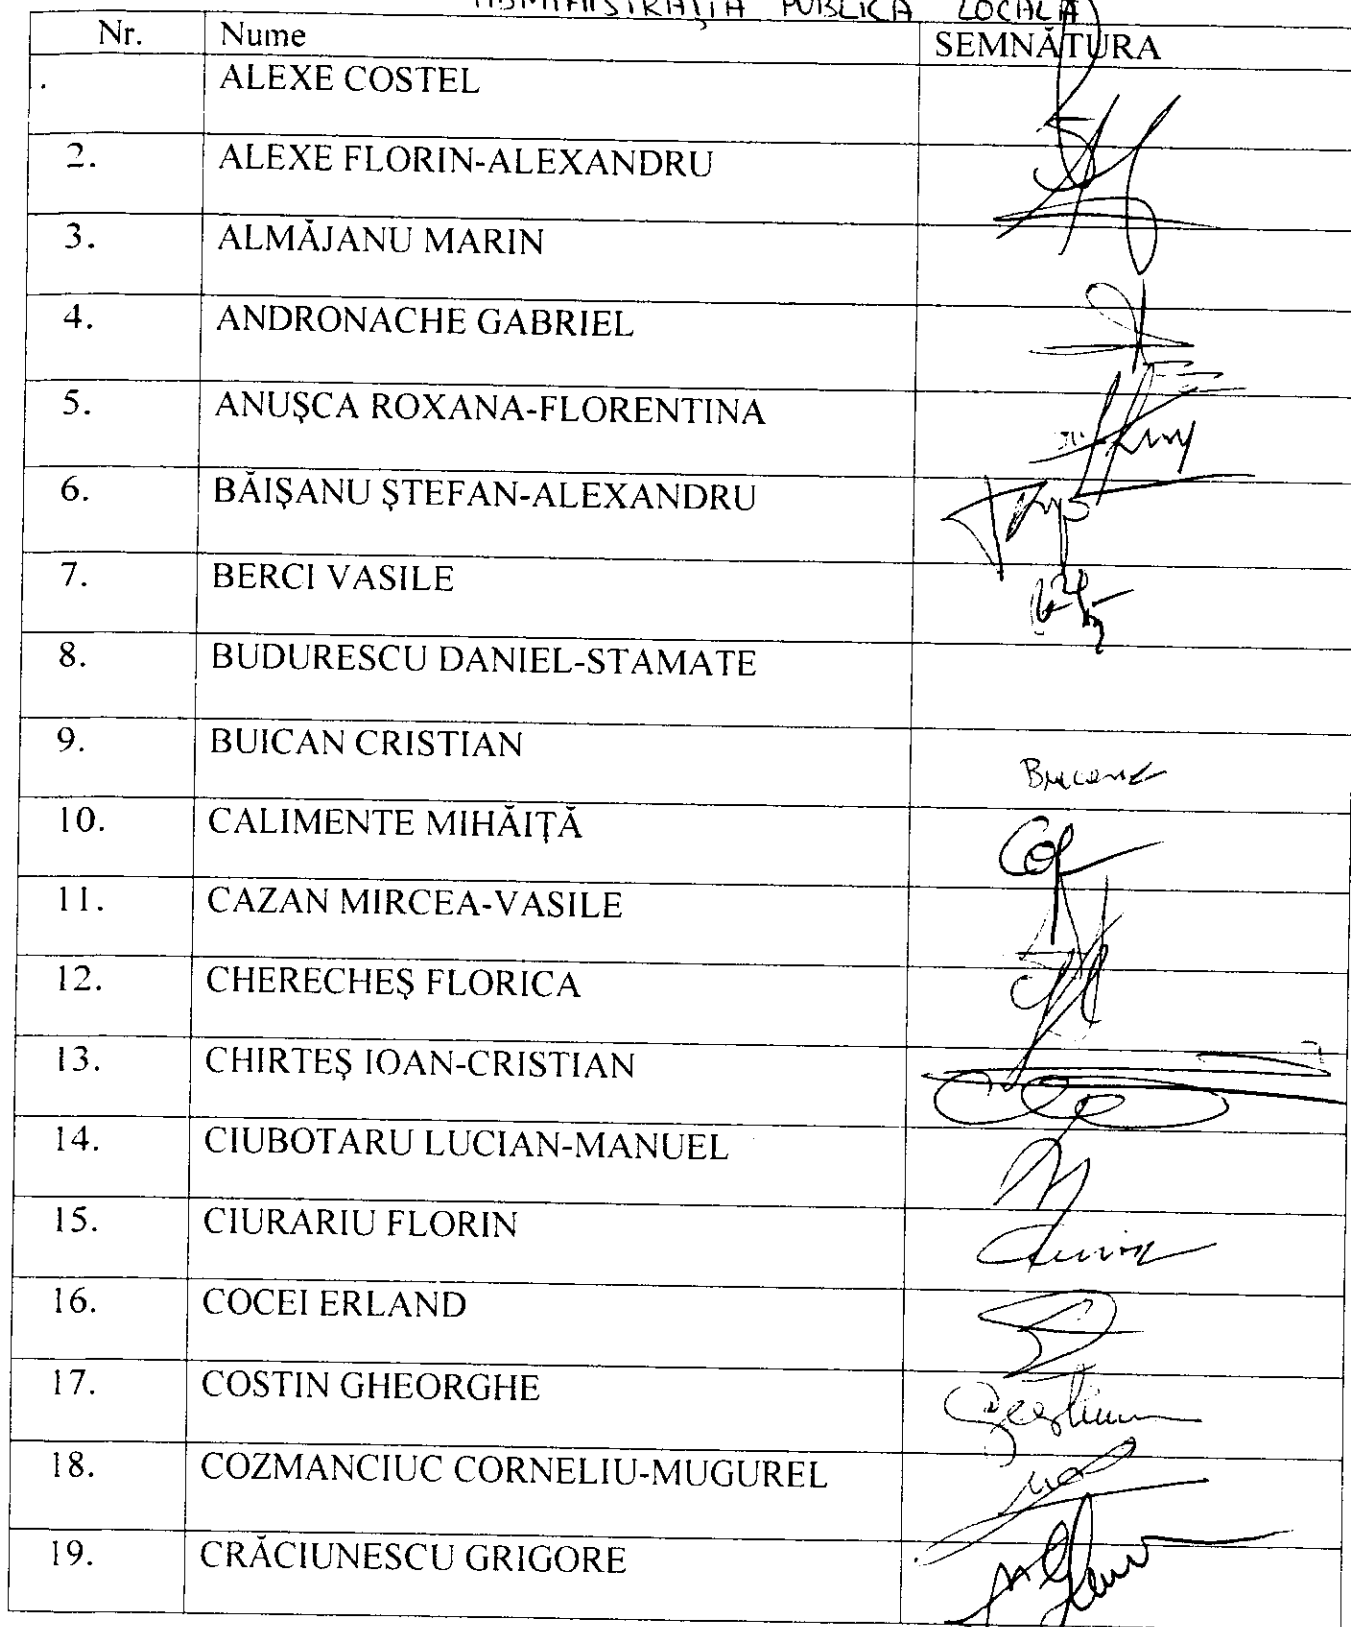 ADMINISTRAȚIA PUBLICĂ LOCALĂ)
Nr. Nume SEMNĂTURA
. ALEXE COSTEL
2. ALEXE FLORIN-ALEXANDRU
3. ALMĂJANU MARIN
4. ANDRONACHE GABRIEL
5. ANUŞCA ROXANA-FLORENTINA
6. BĂIŞANU ŞTEFAN-ALEXANDRU
7. BERCI VASILE
8. BUDURESCU DANIEL-STAMATE
9. BUICAN CRISTIAN
10. CALIMENTE MIHĂIŢĂ
11. CAZAN MIRCEA-VASILE
12. CHERECHEŞ FLORICA
13. CHIRTEŞ IOAN-CRISTIAN
14. CIUBOTARU LUCIAN-MANUEL
15. CIURARIU FLORIN
16. COCEI ERLAND
17. COSTIN GHEORGHE
18. COZMANCIUC CORNELIU-MUGUREL
19. CRĂCIUNESCU GRIGORE